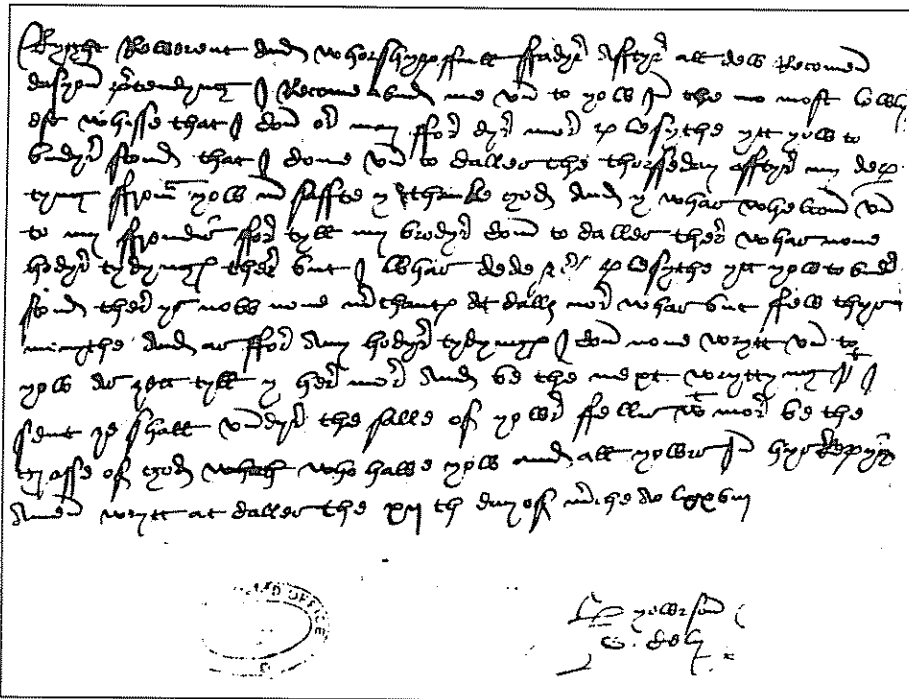 Ryght Rewerent and whorshyppffull ffadyr afftyr all dew Recomen
dasyon pretendyng I Recomeavnd me vn to yow in the mo most lowly
est whisse that I con or may ffor dyr mor plesythe ytt yow to
vndyrstond that I come vn to calles the thorsseday afftyr my depar
tyng ffrom yow in saffte y thanke god and y whas whelcom vn
to my ffrendys ffor tyll my brodyr com to calles ther whas none
hodyr tydyngs ther but I whas dede etc plesythe ytt yow to vnder
stond ther ys now none merchants at calles nor whas but ffew thys
monythe and as ffor any hodyr tydyngs I con none wrytt vn to
yow as yett tyll y her mor and be the next wryttyng þt I
sent ye shall vndyr the salle of yowr ffelles wt mor be the
grasse of god who hawe yow and all yowrs in hys kepyng
amen wrytt at calles the xij th day of marche a lxxvij
OFFICE
per yowr son
G. Cely